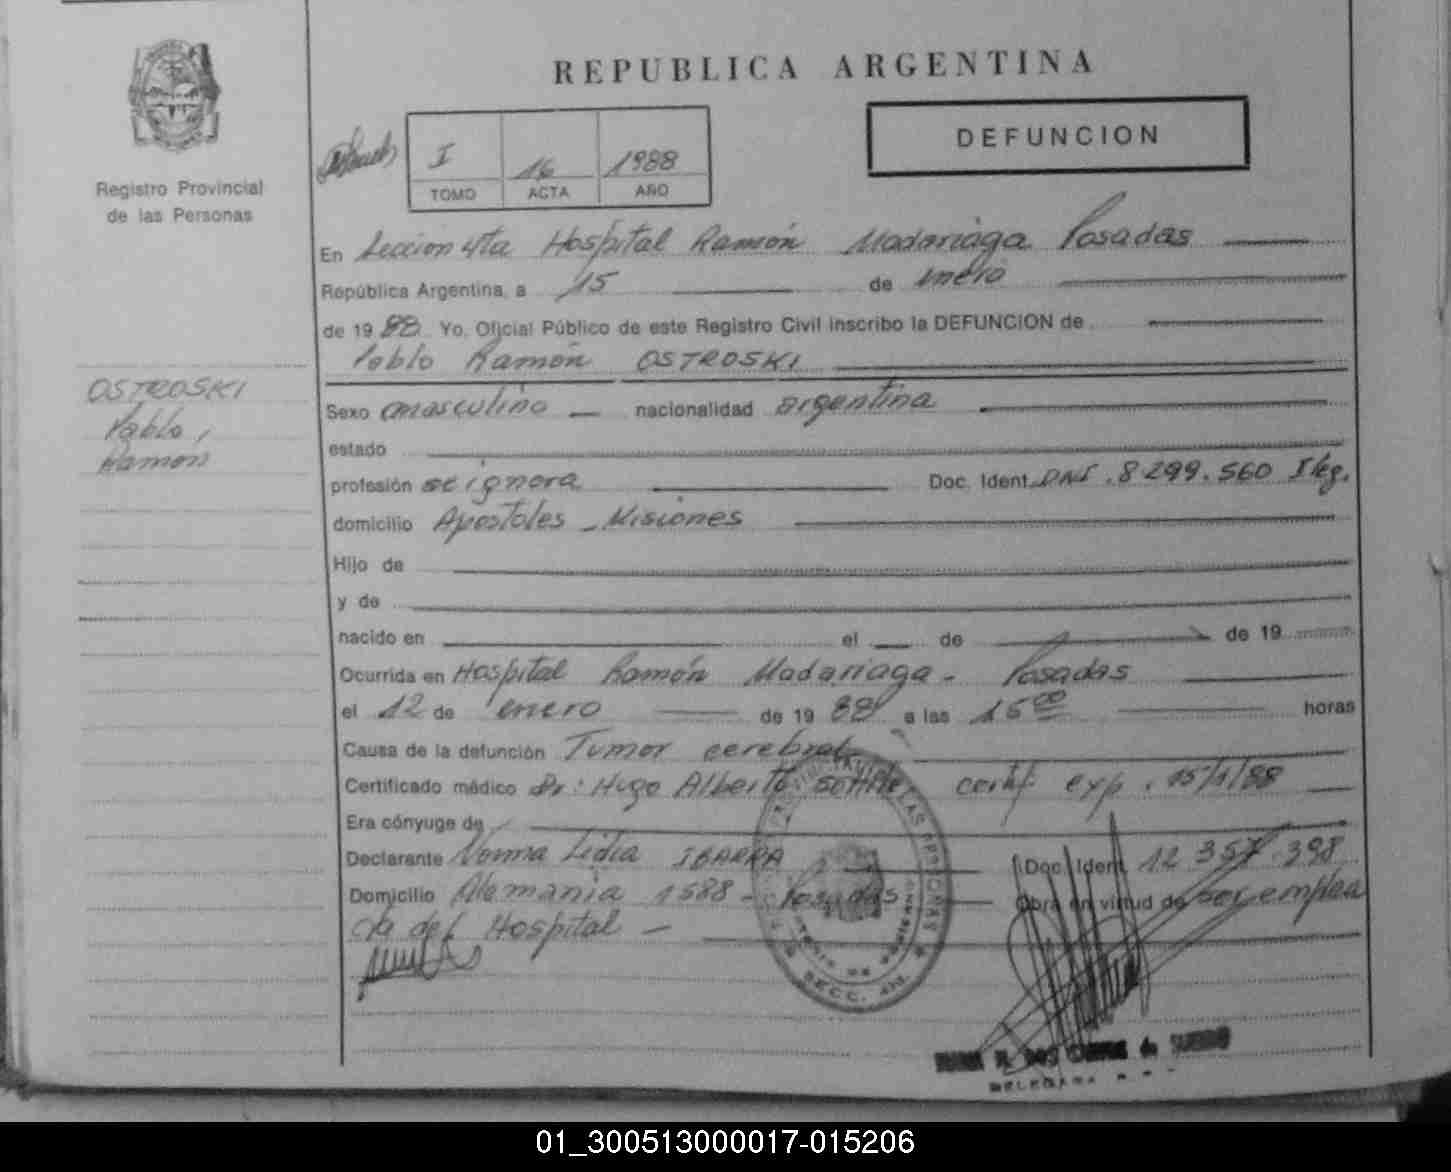 REPUBLICA ARGENTINA
DEFUNCION
I 16 1988
TOMO ACTA AÑO
Registro Provincial
de las Personas
En Seccion 4ta Hospital Ramón Madariaga Posadas
República Argentina, a 15 de enero
de 19 88 Yo, Oficial Público de este Registro Civil inscribo la DEFUNCION de
Pablo Ramón OSTROSKI
OSTROSKI
Pablo,
Ramon
Sexo masculino nacionalidad argentina
estado
profesión se ignora Doc. Ident. DNI. 8299.560 Ileg.
domicilio Apostoles - Misiones
Hijo de
y de
nacido en el de de 19
Ocurrida en Hospital Ramón Madariaga - Posadas
el 12 de enero de 19 88 a las 15 00 horas
Causa de la defunción Tumor cerebral
Certificado médico Dr: Hugo Alberto certif. exp. 15/1/88
Era cónyuge de
Declarante Norma Lidia IBARRA Doc. Ident. 12 357.398
Domicilio Alemania 1588 - Posadas Obra en virtud de ser emplea
da del Hospital -
SECC. 4ta.
DELEGADA
01_300513000017-015206